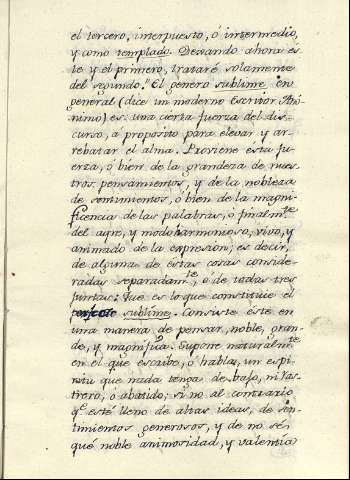 el tercero, interpuesto, ó intermedio,
y como templado. Dexando ahora es
te y el primero, trataré solamente
del segundo. "El genero sublime en
general (dice un moderno Escritor Anó
nimo) es una cierta fuerza del dis-
curso, á proposito para elevar y ar-
rebatar el alma. Proviene esta fu-
erza, ó bien de la grandeza de nues
tros pensamientos, y de la nobleza
de sentimientos, ó bien de la magni-
ficencia de las palabras, ó finalm.te
del ayre, y modo harmonioso, vivo, y
animado de la expresion; es decir,
de alguna de estas cosas conside-
radas separadam.te, ó de todas tres
juntas: que es lo que constituie el
sublime. Consiste éste en
una manera de pensar, noble, gran-
de, y magnifica. Supone naturalm.te
en el que escribe, ó habla, un espi-
ritu que nada tenga de baxo, ni ras-
trero, ó abatido; si no al contrario
q.e esté lleno de altas ideas, de sen-
timientos generosos, y de no sé
qué noble animosidad, y valentia